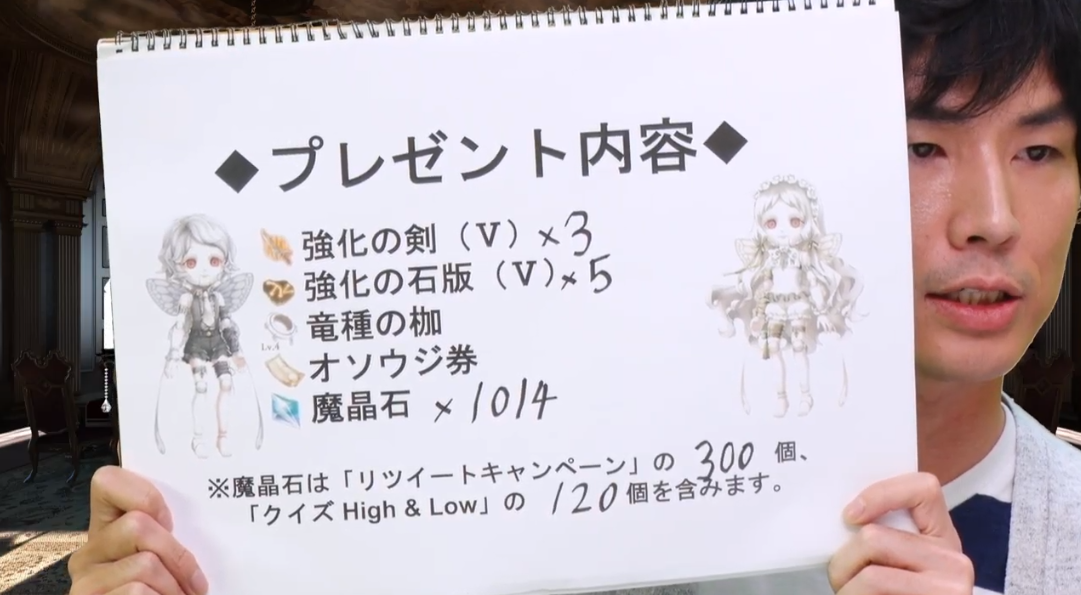 ◆プレゼント内容◆
強化の剣（Ⅴ）×3
強化の石版（Ⅴ）×5
竜種の枷
Lv.4
オソウジ券
魔晶石 ×1014
※魔晶石は「リツイートキャンペーン」の 300 個、
「クイズ High & Low」の 120 個を含みます。